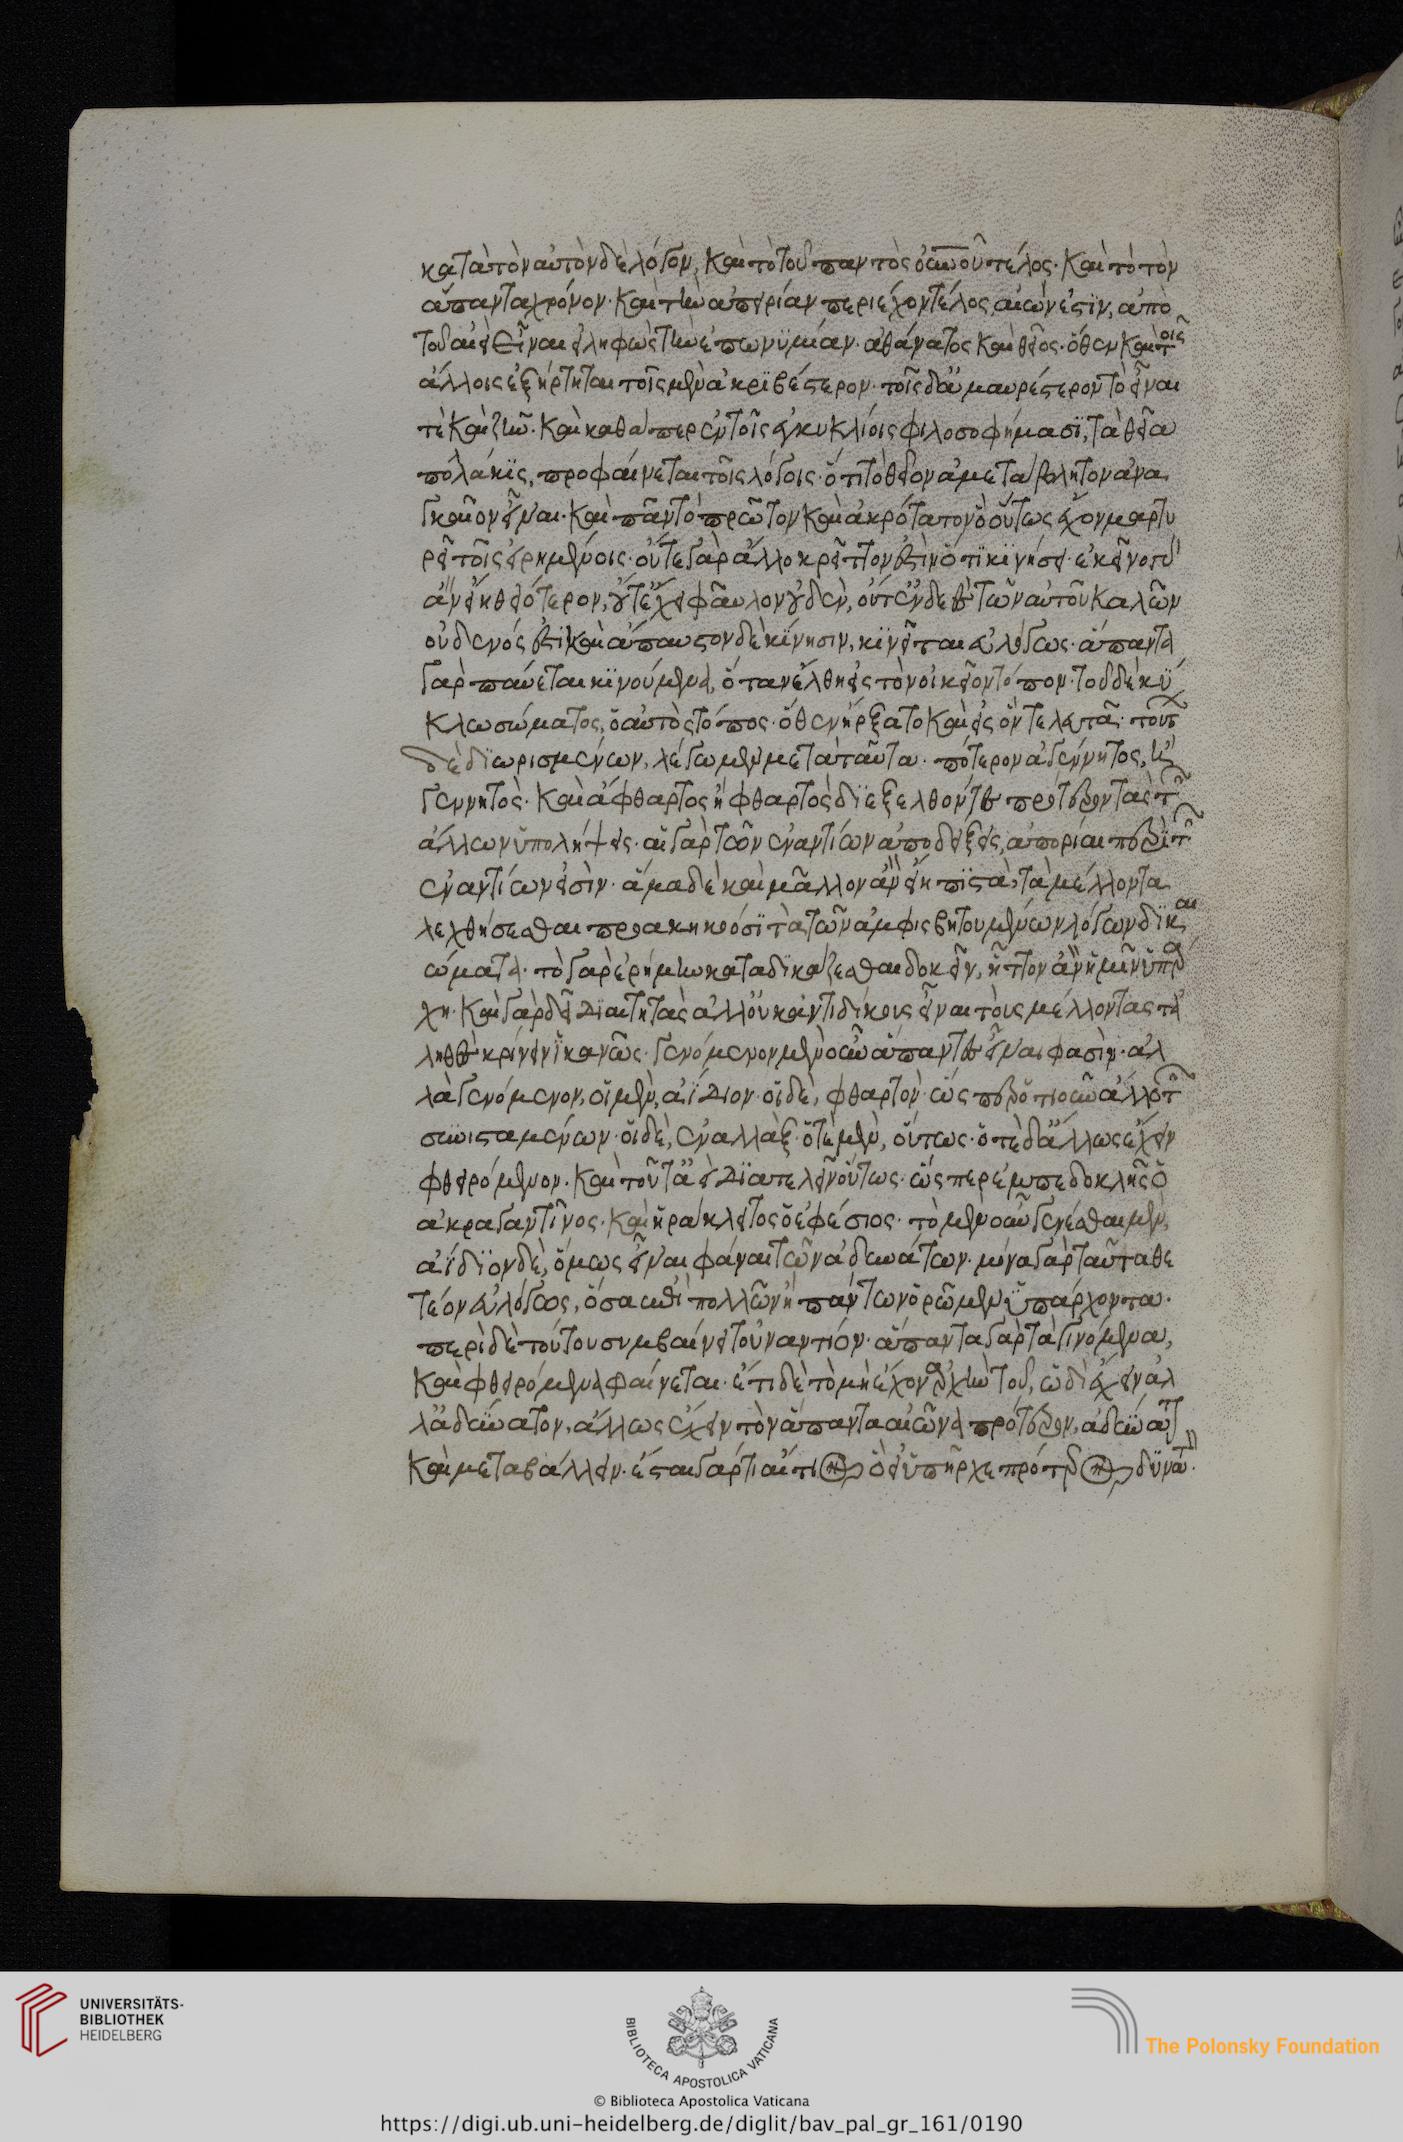 κατὰ τὸν αὐτὸν δὲ λόγον, καὶ τὸ τοῦ παντὸς οὐνοῦ τέλος· καὶ τὸ τὸν
ἅπαντα χρόνον· καὶ τὴν ἀπειρίαν περιέχον τέλος, αἰών ἐστιν, ἀπὸ
τοῦ αἰεὶ εἶναι εἰληφὼς τὴν ἐπωνυμίαν· ἀθάνατος καὶ θεῖος· ὅθεν καὶ τοῖς
ἄλλοις ἐξήρτηται τοῖς μὲν ἀκριβέστερον· τοῖς δ' ἀμαυρέστερον τὸ εἶναι
τὲ καὶ ζῆν· καὶ καθάπερ ἐν τοῖς ἐγκυκλίοις φιλοσοφήμασι, τὰ θεῖα
πολάκις, προφαίνεται τοῖς λόγοις· ὅτι τὸ θεῖον ἀμετάβλητον ἀνα
γκαῖον εἶναι· καὶ πᾶν τὸ πρῶτον καὶ ἀκρότατον ὃ οὕτως ἔχον μαρτυ
ρεῖ τοῖς εἰρημένοις· οὔτε γὰρ ἄλλο κρεῖττον ἐστὶν ὅτι κινήσει· ἐκεῖνο γὰρ
ἂν εἴη θειότερον, οὔτε ἔχει φαῦλον οὐδὲν, οὔτ' ἐνδεὲς τῶν αὐτοῦ καλῶν
οὐδενός ἐστι· καὶ ἄπαυστον δὲ κίνησιν, κινεῖται εὐλόγως· ἅπαντα
γὰρ παύεται κινούμενα, ὅταν ἔλθη εἰς τὸν οἰκεῖον τόπον· τοῦ δὲ κύ
κλω σώματος, ὁ αὐτὸς τόπος· ὅθεν ἤρξατο καὶ εἰς ὃν τελευτᾶ· τούτων
δὲ διωρισμένων, λέγωμεν μετὰ ταῦτα· πότερον ἀγέννητος, ἢ
γεννητὸς· καὶ ἄφθαρτος ἢ φθαρτὸς διεξελθόντες πρότερον τὰς τῶν
ἄλλων ὑπολήψεις· αἱ γὰρ τῶν ἐναντίων ἀποδείξεις, ἀπορίαι περὶ τῶν
ἐναντίων εἰσὶν· ἅμα δὲ καὶ μᾶλλον ἂν εἴη πιστὰ, τὰ μέλλοντα
λεχθήσεσθαι προακηκοόσι τὰ τῶν ἀμφισβητουμένων λόγων δικαι
ώματα· τὸ γὰρ ἐρήμην καταδικάζεσθαι δοκεῖν, ἧττον ἂν ἡμῖν ὑπάρ
χη· καὶ γὰρ δεῖ διαιτητὰς ἀλλ' οὐκ ἀντιδίκους εἶναι τοὺς μέλλοντας τἀ
ληθὲς κρίνειν ἱκανῶς· γενόμενον μὲν οὖν ἅπαντες εἶναι φασὶν· ἀλ
λὰ γενόμενον, οἱ μὲν, ἀΐδιον· οἱ δὲ, φθαρτὸν· ὥσπερ ὁτιοῦν ἄλλο τῶν
συνισταμένων· οἱ δὲ, ἐναλλὰξ· ὁτὲ μὲν, οὕτως· ὁτὲ δ' ἄλλως ἔχειν
φθειρόμενον· καὶ τοῦτ' ἀεὶ διατελεῖν οὕτως· ὥσπερ ἐμπεδοκλῆς ὁ
ἀκραγαντῖνος· καὶ ἡράκλειτος ὁ ἐφέσιος· τὸ μὲν οὖν γενέσθαι μὲν,
ἀΐδιον δὲ, ὅμως εἶναι φάναι τῶν ἀδυνάτων· μόνα γὰρ ταῦτα θε
τέον εὐλόγως, ὅσα ἐπὶ πολλῶν ἢ πάντων ὁρῶμεν ὑπάρχοντα·
περὶ δὲ τούτου συμβαίνει τοὐναντίον· ἅπαντα γὰρ τὰ γινόμενα,
καὶ φθειρόμενα φαίνεται· ἔτι δὲ τὸ μὴ ἔχον ἀρχὴν τοῦ, ὡδὶ ἔχειν ἀλ
λ' ἀδύνατον, ἄλλως ἔχειν τὸν ἅπαντα αἰῶνα πρότερον, ἀδύνατον
καὶ μεταβάλλειν· ἔσται γάρ τι αἴτιον ὃ εἰ ὑπῆρχε πρότερον δυνατὸν·
UNIVERSITÄTS-
BIBLIOTHEK
HEIDELBERG
BIBLIOTECA APOSTOLICA VATICANA
The Polonsky Foundation
© Biblioteca Apostolica Vaticana
https://digi.ub.uni-heidelberg.de/diglit/bav_pal_gr_161/0190